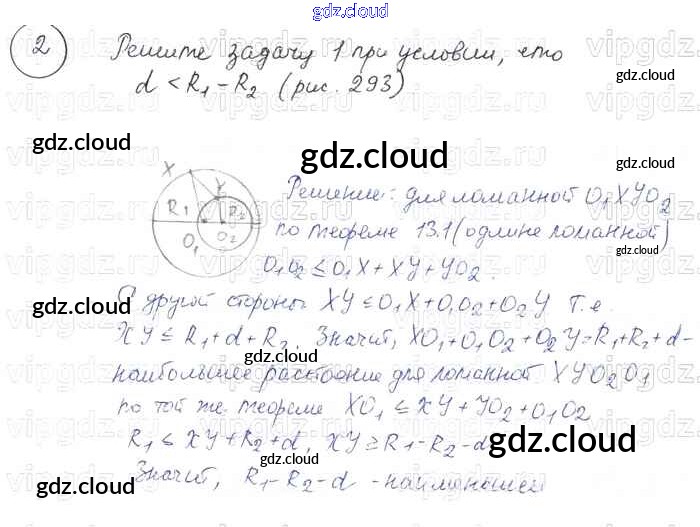 gdz.cloud
2 Решите задачу 1 при условии, что
d < R₁ - R₂ (рис. 293)
gdz.cloud
gdz.cloud
gdz.cloud
X Y
R₁ R₂
O₁ O₂
Решение: для ломанной O₁XYO₂
по теореме 13.1 (о длине ломанной)
gdz.cloud
O₁O₂ ≤ O₁X + XY + YO₂.
gdz.cloud
С другой стороны XY ≤ O₁X + O₁O₂ + O₂Y т.е.
gdz.cloud
XY ≤ R₁ + d + R₂. Значит, XO₁ + O₁O₂ + O₂Y = R₁ + R₂ + d -
gdz.cloud
наибольшее расстояние для ломанной XYO₂O₁
gdz.cloud
по той же теореме XO₁ ≤ XY + YO₂ + O₁O₂
R₁ ≤ XY + R₂ + d, XY ≥ R₁ - R₂ - d
gdz.cloud
gdz.cloud
Значит, R₁ - R₂ - d - наименьшее
gdz.cloud
gdz.cloud